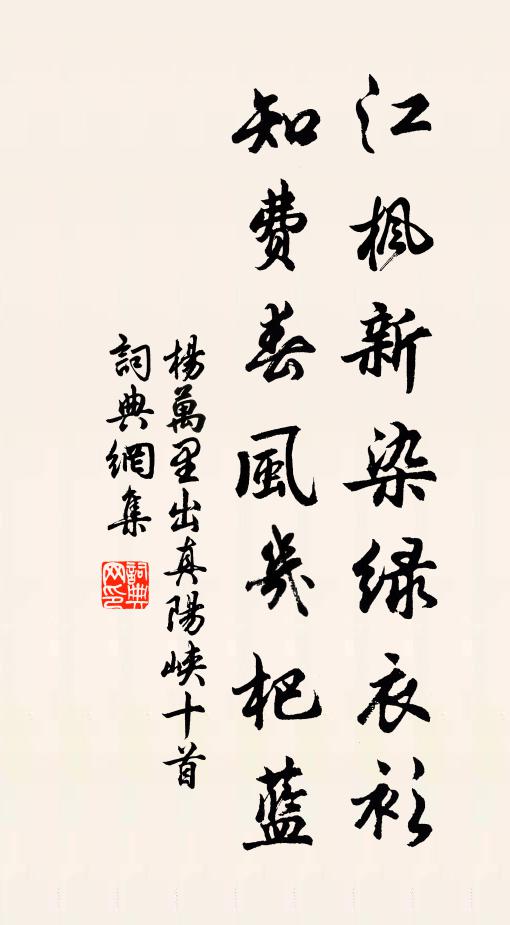 江楓新染綠衣衫
知費春風幾杷藍
楊萬里出真陽峽十首
詞典網集
詞典网印